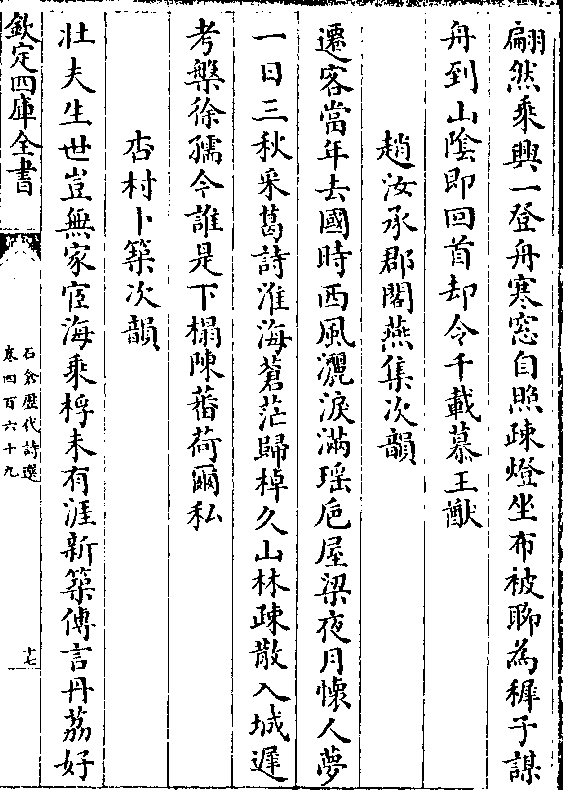 翩然乘興一登舟寒窓自照疎燈坐布被聊為穉子謀
舟到山陰即回首却令千載慕王猷
趙汝承郡閣燕集次韻
遷客當年去國時西風灑淚滿瑶巵屋梁夜月懷人夢
一日三秋采葛詩淮海蒼茫歸棹久山林疎散入城遲
考槃徐孺今誰是下榻陳蕃荷爾私
杏村卜築次韻
壯夫生世豈無家宦海乘桴未有涯新築傳言丹荔好
欽定四庫全書
石倉歴代詩選
卷四百六十九
十七